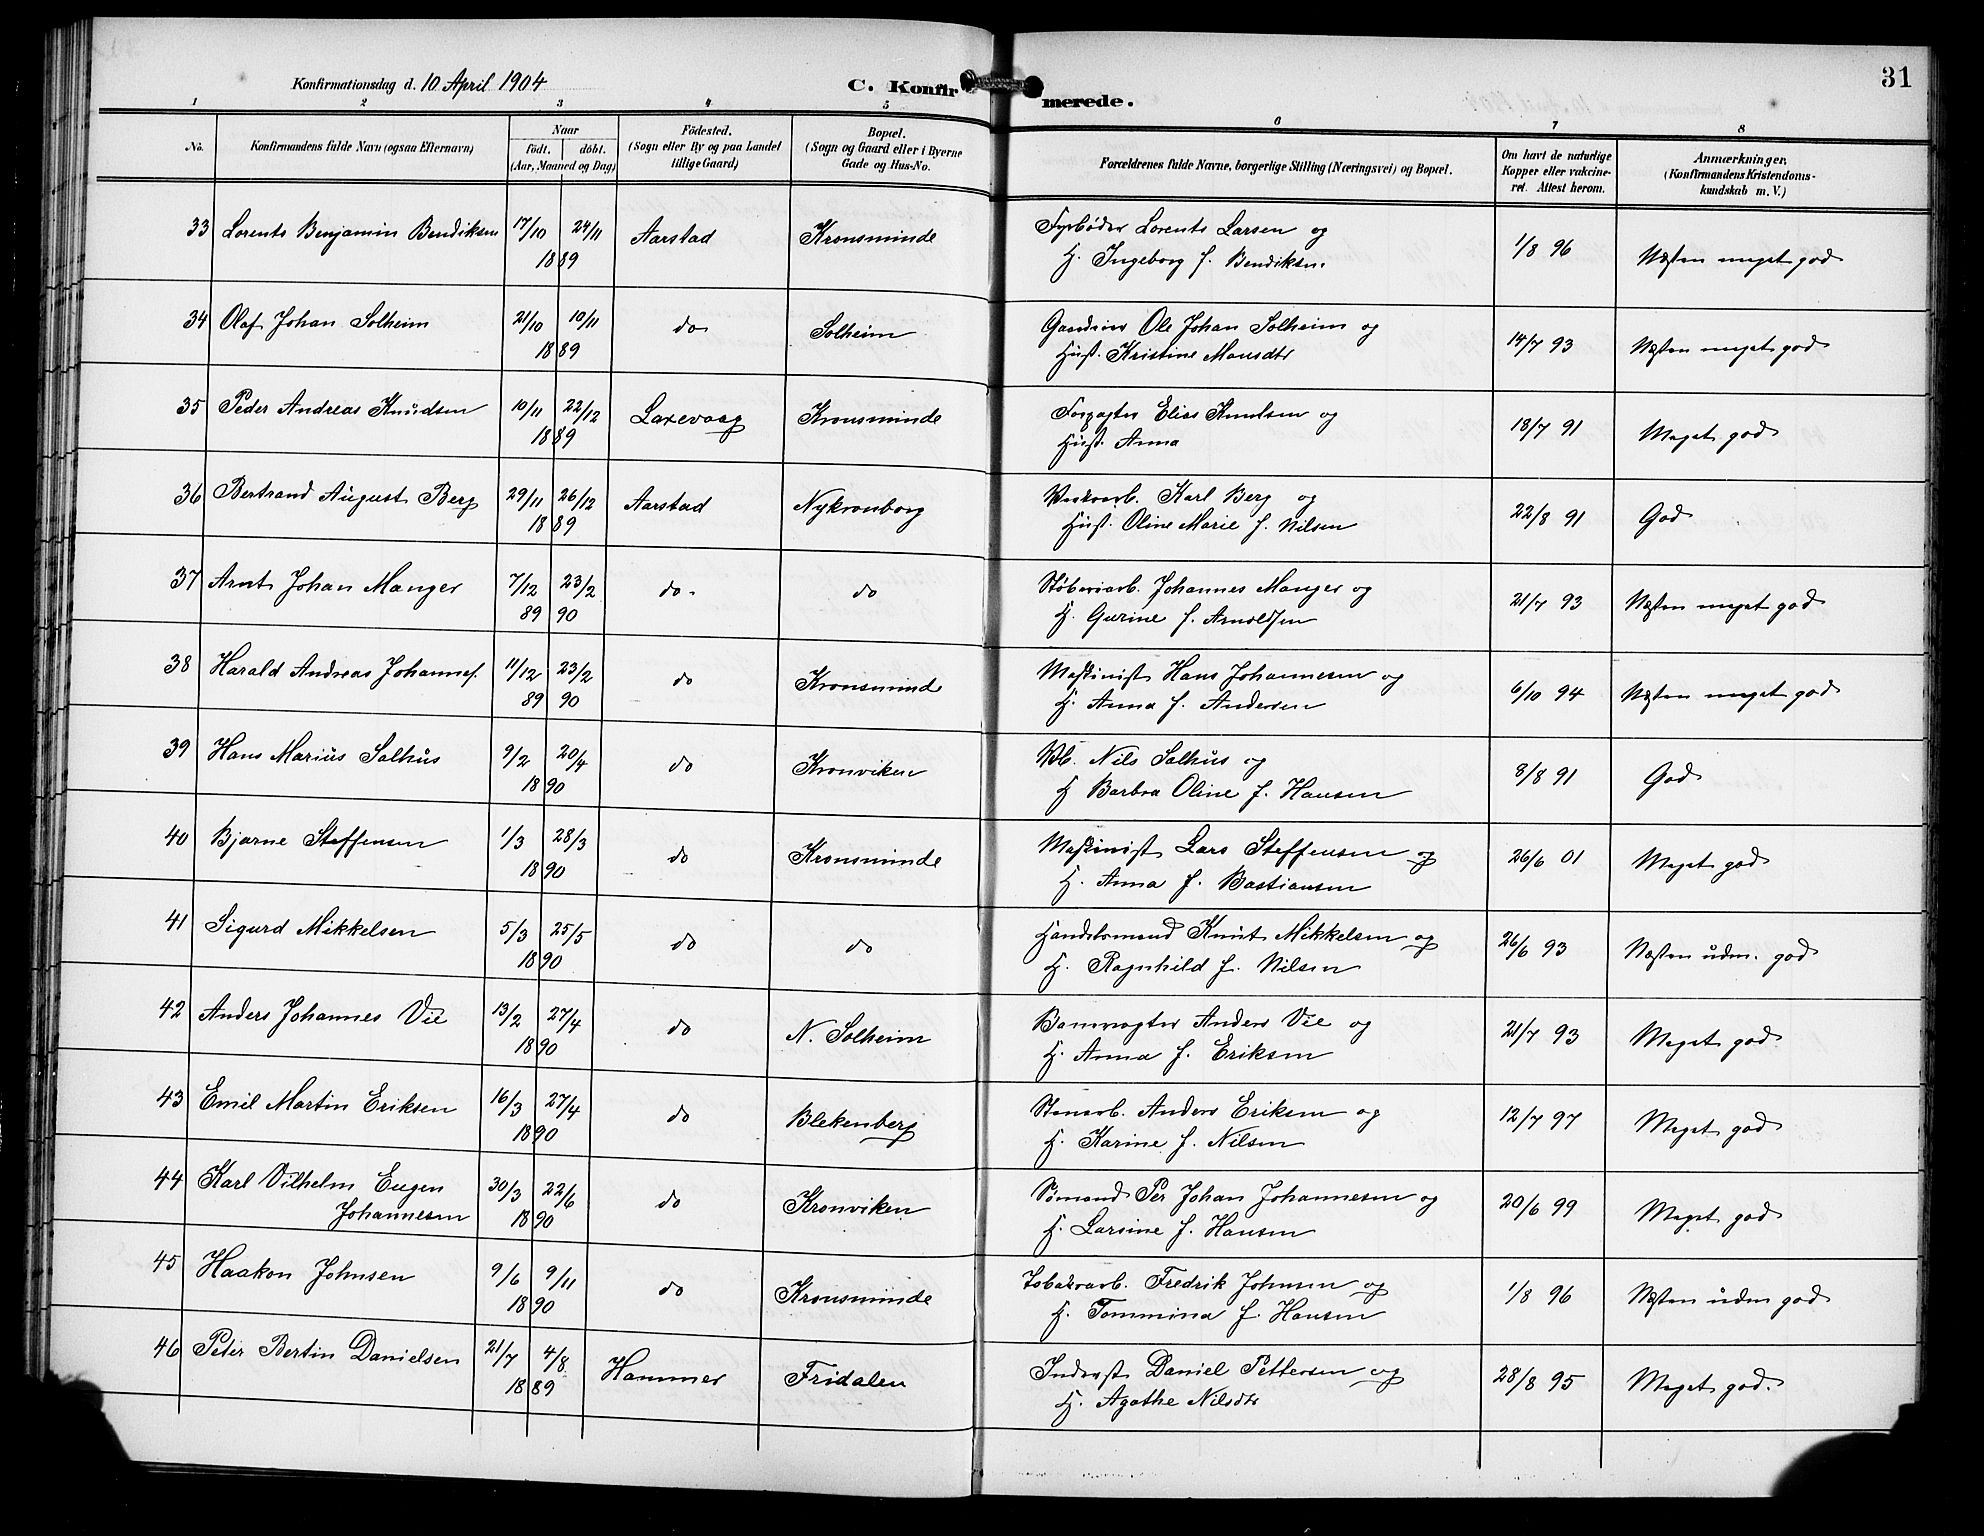 Konfirmationsdag d. 10 April 1904
C. Konfirmerede.
31
1 2 3 4 5 6 7 8
No. Konfirmandens fulde Navn (ogsaa Efternavn) Naar født. døbt. (Aar, Maaned og Dag) Fødested. (Sogn eller By og paa Landet tillige Gaard) Bopæl. (Sogn og Gaard eller i Byerne Gade og Hus-No. Forældrenes fulde Navne, borgerlige Stilling (Næringsvei) og Bopæl. Om havt de naturlige Kopper eller vakcineret. Attest herom. Anmærkninger. (Konfirmandens Kristendomskundskab m. V.)
33 Lorents Benjamin Bendiksen 17/10 24/11 1889 Aarstad Kronsminde Fyrbøder Lorents Larsen og
H. Ingeborg f. Bendiksen. 1/8 96 Næsten meget god
34 Olaf Johan Solheim 21/10 10/11 1889 do Solheim Ole Johan Solheim og
Hust. Kristine Monsdtr 14/7 93 Næsten meget god
35 Peder Andreas Knudsen 10/11 22/12 1889 Laxevaag Kronsminde Forpagter Elias Knudsen og
Hust. Anna 18/7 91 Meget god
36 Bertrand August Berg 29/11 26/12 1889 Aarstad Nykronborg Karl Berg og
Hust. Oline Marie f. Nilsen 22/8 91 God
37 Arnt Johan Manger 7/12 89 23/2 90 do. do Støberiarb. Johannes Manger og
H. Gurine f. Arnoldsen 21/7 93 Næsten meget god
38 Harald Andreas Johannes. 11/12 89 23/2 90 do Kronsminde Maskinist Hans Johannesen og
H. Anna f. Andersen 6/10 94 Næsten meget god
39 Hans Marius Salhus 9/2 20/4 1890 do Kronviken Nils Salhus og
H Barbra Oline f. Hansen 8/8 91 God
40 Bjarne Steffensen 1/3 28/3 1890 do Kronsminde Maskinist Lars Steffensen og
H. Anna f. Bastiansen 26/6 01 Meget god
41 Sigurd Mikkelsen 5/3 25/5 1890 do do Handelsmand Knut Mikkelsen og
H. Ragnhild f. Nilsen 26/6 93 Næsten udm. god
42 Anders Johannes Vie 13/2 27/4 1890 do N. Solheim Banevogter Anders Vie og
H. Anna f. Eriksen 21/7 93 Meget god
43 Emil Martin Eriksen 16/3 27/4 1890 do Blekenberg Stenarb. Anders Eriksen og
H. Karine f. Nilsen 12/7 97 Meget god
44 Karl Vilhelm Eugen
Johannesen 30/3 22/6 1890 do Kronviken Sømand Per Johan Johannesen og
H. Larsine f. Hansen 20/6 99 Meget god
45 Haakon Johnsen 9/6 9/11 1890 do Kronsminde Tobaksarb. Fredrik Johnsen og
H. Tommina f. Hansen 1/8 96 Næsten udm god
46 Peter Bertin Danielsen 21/7 4/8 1889 Hammer Fridalen Inderst Daniel Pettersen og
H. Agathe Nilsdtr 28/8 95 Meget god.